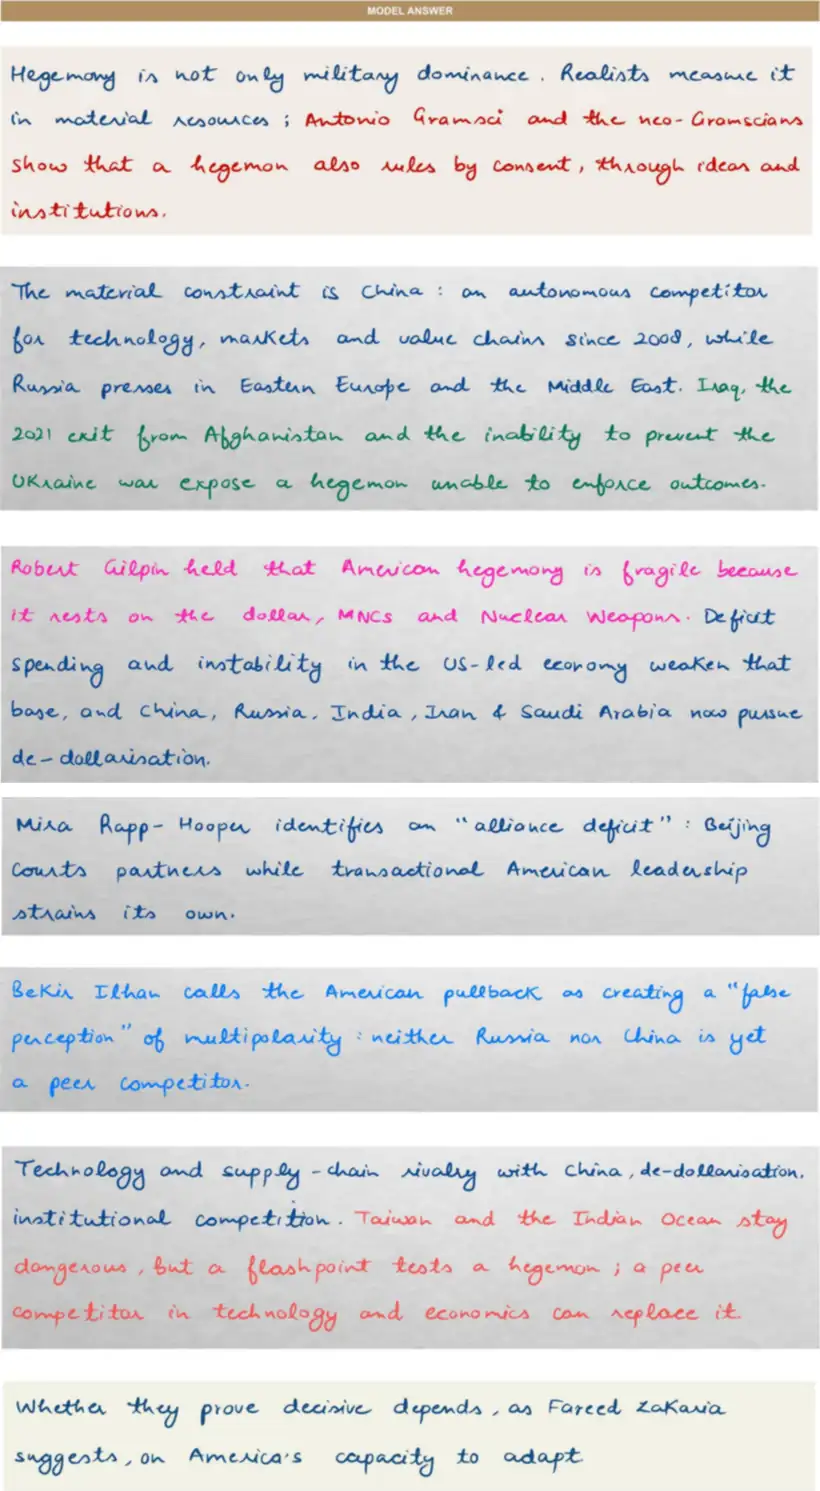 MODEL ANSWER
Hegemony is not only military dominance. Realists measure it
in material resources; Antonio Gramsci and the neo-Gramscians
show that a hegemon also rules by consent, through ideas and
institutions.
The material constraint is China: an autonomous competitor
for technology, markets and value chains since 2008, while
Russia presses in Eastern Europe and the Middle East. Iraq, the
2021 exit from Afghanistan and the inability to prevent the
Ukraine war expose a hegemon unable to enforce outcomes.
Robert Gilpin held that American hegemony is fragile because
it rests on the dollar, MNCs and Nuclear Weapons. Deficit
spending and instability in the US-led economy weaken that
base, and China, Russia, India, Iran & Saudi Arabia now pursue
de-dollarisation.
Mira Rapp-Hooper identifies an "alliance deficit": Beijing
courts partners while transactional American leadership
strains its own.
Bekir Ilhan calls the American pullback as creating a "false
perception" of multipolarity: neither Russia nor China is yet
a peer competitor.
Technology and supply-chain rivalry with China, de-dollarisation,
institutional competition. Taiwan and the Indian Ocean stay
dangerous, but a flashpoint tests a hegemon; a peer
competitor in technology and economics can replace it
Whether they prove decisive depends, as Fareed Zakaria
suggests, on America's capacity to adapt